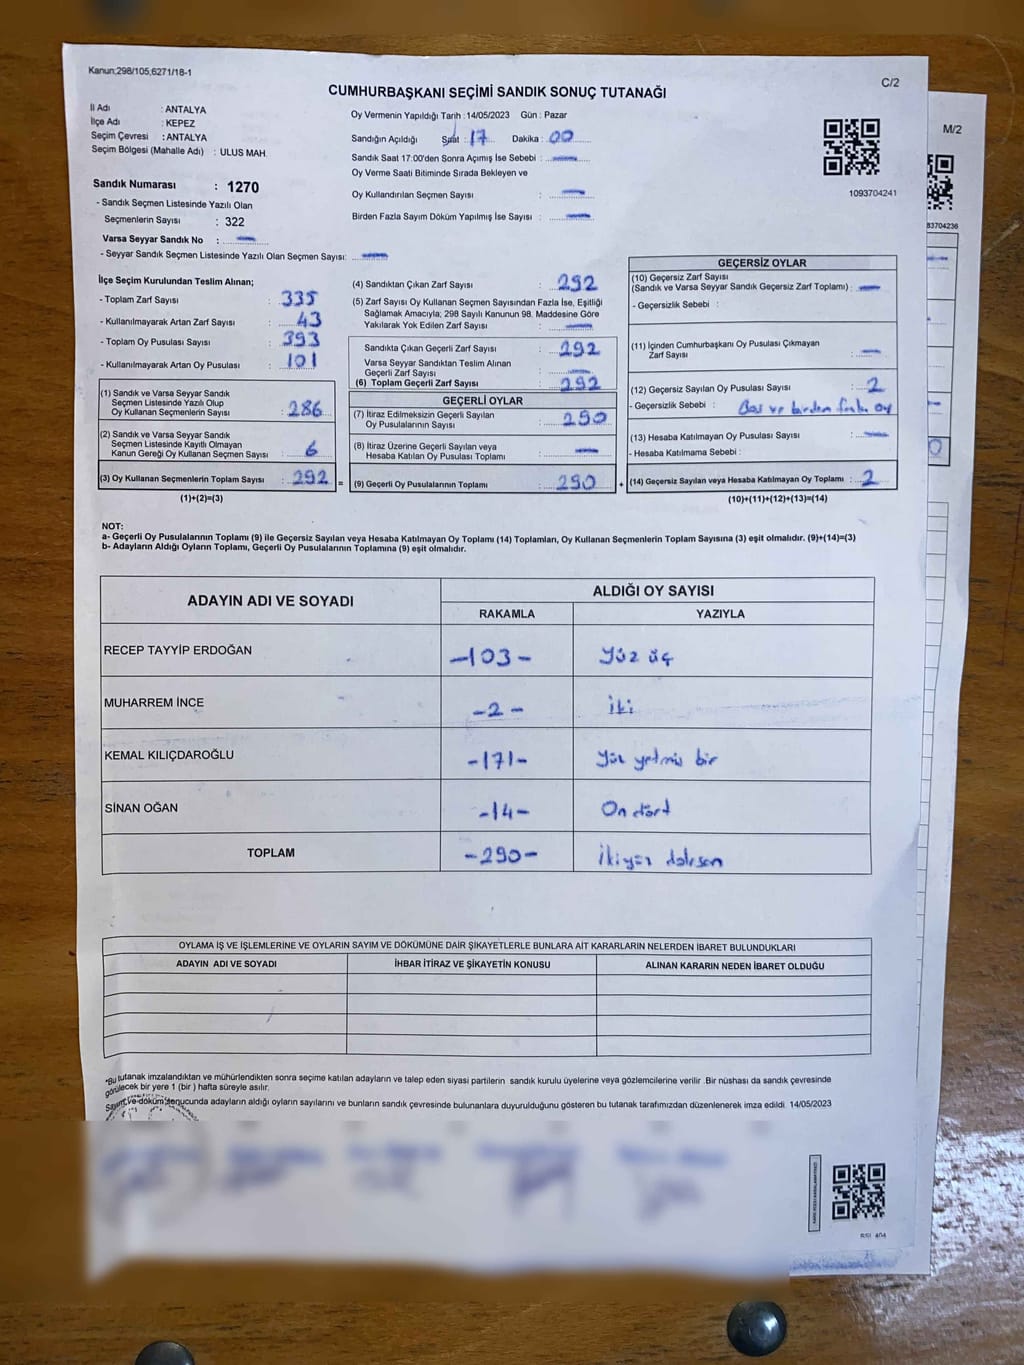 Kanun;298/105,6271/18-1
C/2
CUMHURBAŞKANI SEÇİMİ SANDIK SONUÇ TUTANAĞI
M/2
İl Adı : ANTALYA
İlçe Adı : KEPEZ
Seçim Çevresi : ANTALYA
Seçim Bölgesi (Mahalle Adı) : ULUS MAH.
Sandık Numarası : 1270
- Sandık Seçmen Listesinde Yazılı Olan
Seçmenlerin Sayısı : 322
Varsa Seyyar Sandık No :
- Seyyar Sandık Seçmen Listesinde Yazılı Olan Seçmen Sayısı:
Oy Vermenin Yapıldığı Tarih : 14/05/2023 Gün : Pazar
Sandığın Açıldığı Saat : 17 Dakika : 00
Sandık Saat 17:00'den Sonra Açımış İse Sebebi :
Oy Verme Saati Bitiminde Sırada Bekleyen ve
Oy Kullandırılan Seçmen Sayısı :
Birden Fazla Sayım Döküm Yapılmış İse Sayısı :
1093704241
93704236
İlçe Seçim Kurulundan Teslim Alınan;
- Toplam Zarf Sayısı : 335
- Kullanılmayarak Artan Zarf Sayısı : 43
- Toplam Oy Pusulası Sayısı : 393
- Kullanılmayarak Artan Oy Pusulası : 101
(1) Sandık ve Varsa Seyyar Sandık
Seçmen Listesinde Yazılı Olup
Oy Kullanan Seçmenlerin Sayısı : 286
(2) Sandık ve Varsa Seyyar Sandık
Seçmen Listesinde Kayıtlı Olmayan
Kanun Gereği Oy Kullanan Seçmen Sayısı : 6
(3) Oy Kullanan Seçmenlerin Toplam Sayısı : 292 =
(1)+(2)=(3)
(4) Sandıktan Çıkan Zarf Sayısı : 292
(5) Zarf Sayısı Oy Kullanan Seçmen Sayısından Fazla İse, Eşitliği
Sağlamak Amacıyla; 298 Sayılı Kanunun 98. Maddesine Göre
Yakılarak Yok Edilen Zarf Sayısı :
Sandıkta Çıkan Geçerli Zarf Sayısı : 292
Varsa Seyyar Sandıktan Teslim Alınan
Geçerli Zarf Sayısı :
(6) Toplam Geçerli Zarf Sayısı : 292
GEÇERLİ OYLAR
(7) İtiraz Edilmeksizin Geçerli Sayılan
Oy Pusulalarının Sayısı : 290
(8) İtiraz Üzerine Geçerli Sayılan veya
Hesaba Katılan Oy Pusulası Toplamı :
(9) Geçerli Oy Pusulalarının Toplamı : 290 +
GEÇERSİZ OYLAR
(10) Geçersiz Zarf Sayısı
(Sandık ve Varsa Seyyar Sandık Geçersiz Zarf Toplamı) :
- Geçersizlik Sebebi :
(11) İçinden Cumhurbaşkanı Oy Pusulası Çıkmayan
Zarf Sayısı :
(12) Geçersiz Sayılan Oy Pusulası Sayısı : 2
- Geçersizlik Sebebi : Boş ve birden fazla oy
(13) Hesaba Katılmayan Oy Pusulası Sayısı :
- Hesaba Katılmama Sebebi :
(14) Geçersiz Sayılan veya Hesaba Katılmayan Oy Toplamı : 2
(10)+(11)+(12)+(13)=(14)
NOT:
a- Geçerli Oy Pusulalarının Toplamı (9) ile Geçersiz Sayılan veya Hesaba Katılmayan Oy Toplamı (14) Toplamları, Oy Kullanan Seçmenlerin Toplam Sayısına (3) eşit olmalıdır. (9)+(14)=(3)
b- Adayların Aldığı Oyların Toplamı, Geçerli Oy Pusulalarının Toplamına (9) eşit olmalıdır.
ADAYIN ADI VE SOYADI
ALDIĞI OY SAYISI
RAKAMLA YAZIYLA
RECEP TAYYİP ERDOĞAN -103- Yüz üç
MUHARREM İNCE -2- İki
KEMAL KILIÇDAROĞLU -171- Yüz yetmiş bir
SİNAN OĞAN -14- On dört
TOPLAM -290- İkiyüz doksan
OYLAMA İŞ VE İŞLEMLERİNE VE OYLARIN SAYIM VE DÖKÜMÜNE DAİR ŞİKAYETLERLE BUNLARA AİT KARARLARIN NELERDEN İBARET BULUNDUKLARI
ADAYIN ADI VE SOYADI İHBAR İTİRAZ VE ŞİKAYETİN KONUSU ALINAN KARARIN NEDEN İBARET OLDUĞU
*Bu tutanak imzalandıktan ve mühürlendikten sonra seçime katılan adayların ve talep eden siyasi partilerin sandık kurulu üyelerine veya gözlemcilerine verilir .Bir nüshası da sandık çevresinde
görülecek bir yere 1 (bir) hafta süreyle asılır.
Sayım ve döküm sonucunda adayların aldığı oyların sayılarını ve bunların sandık çevresinde bulunanlara duyurulduğunu gösteren bu tutanak tarafımızdan düzenlenerek imza edildi. 14/05/2023